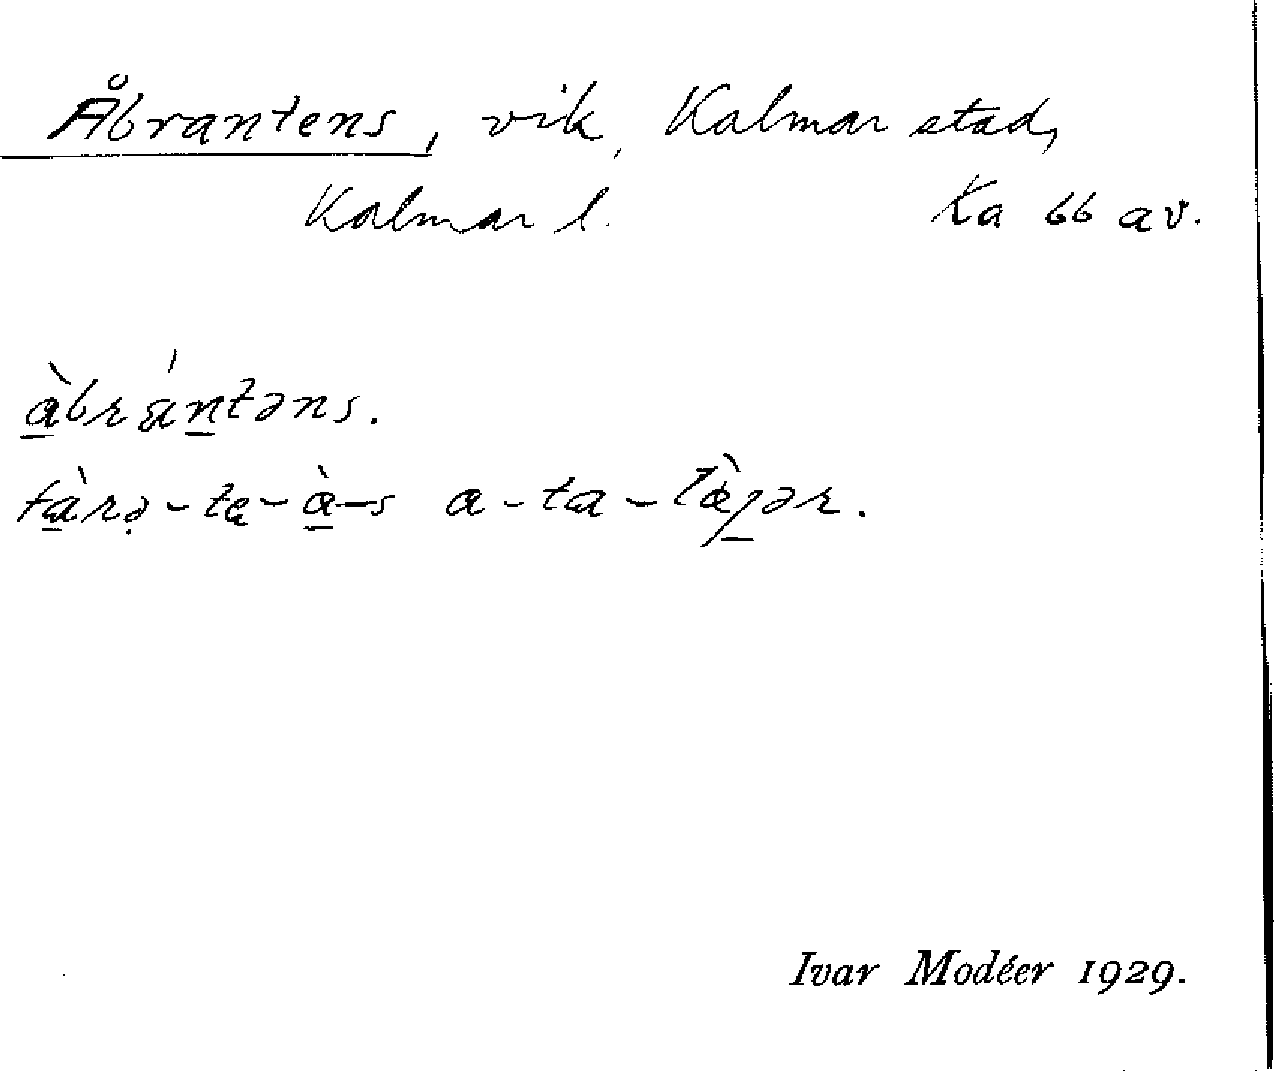 Åbrantens, vik, Kalmar stad,
Kalmar l. Ka 66 av.
à̲brán̲təns.
tà̲rə̣-ta-à̲-s a-ta-
Ivar Modéer 1929.